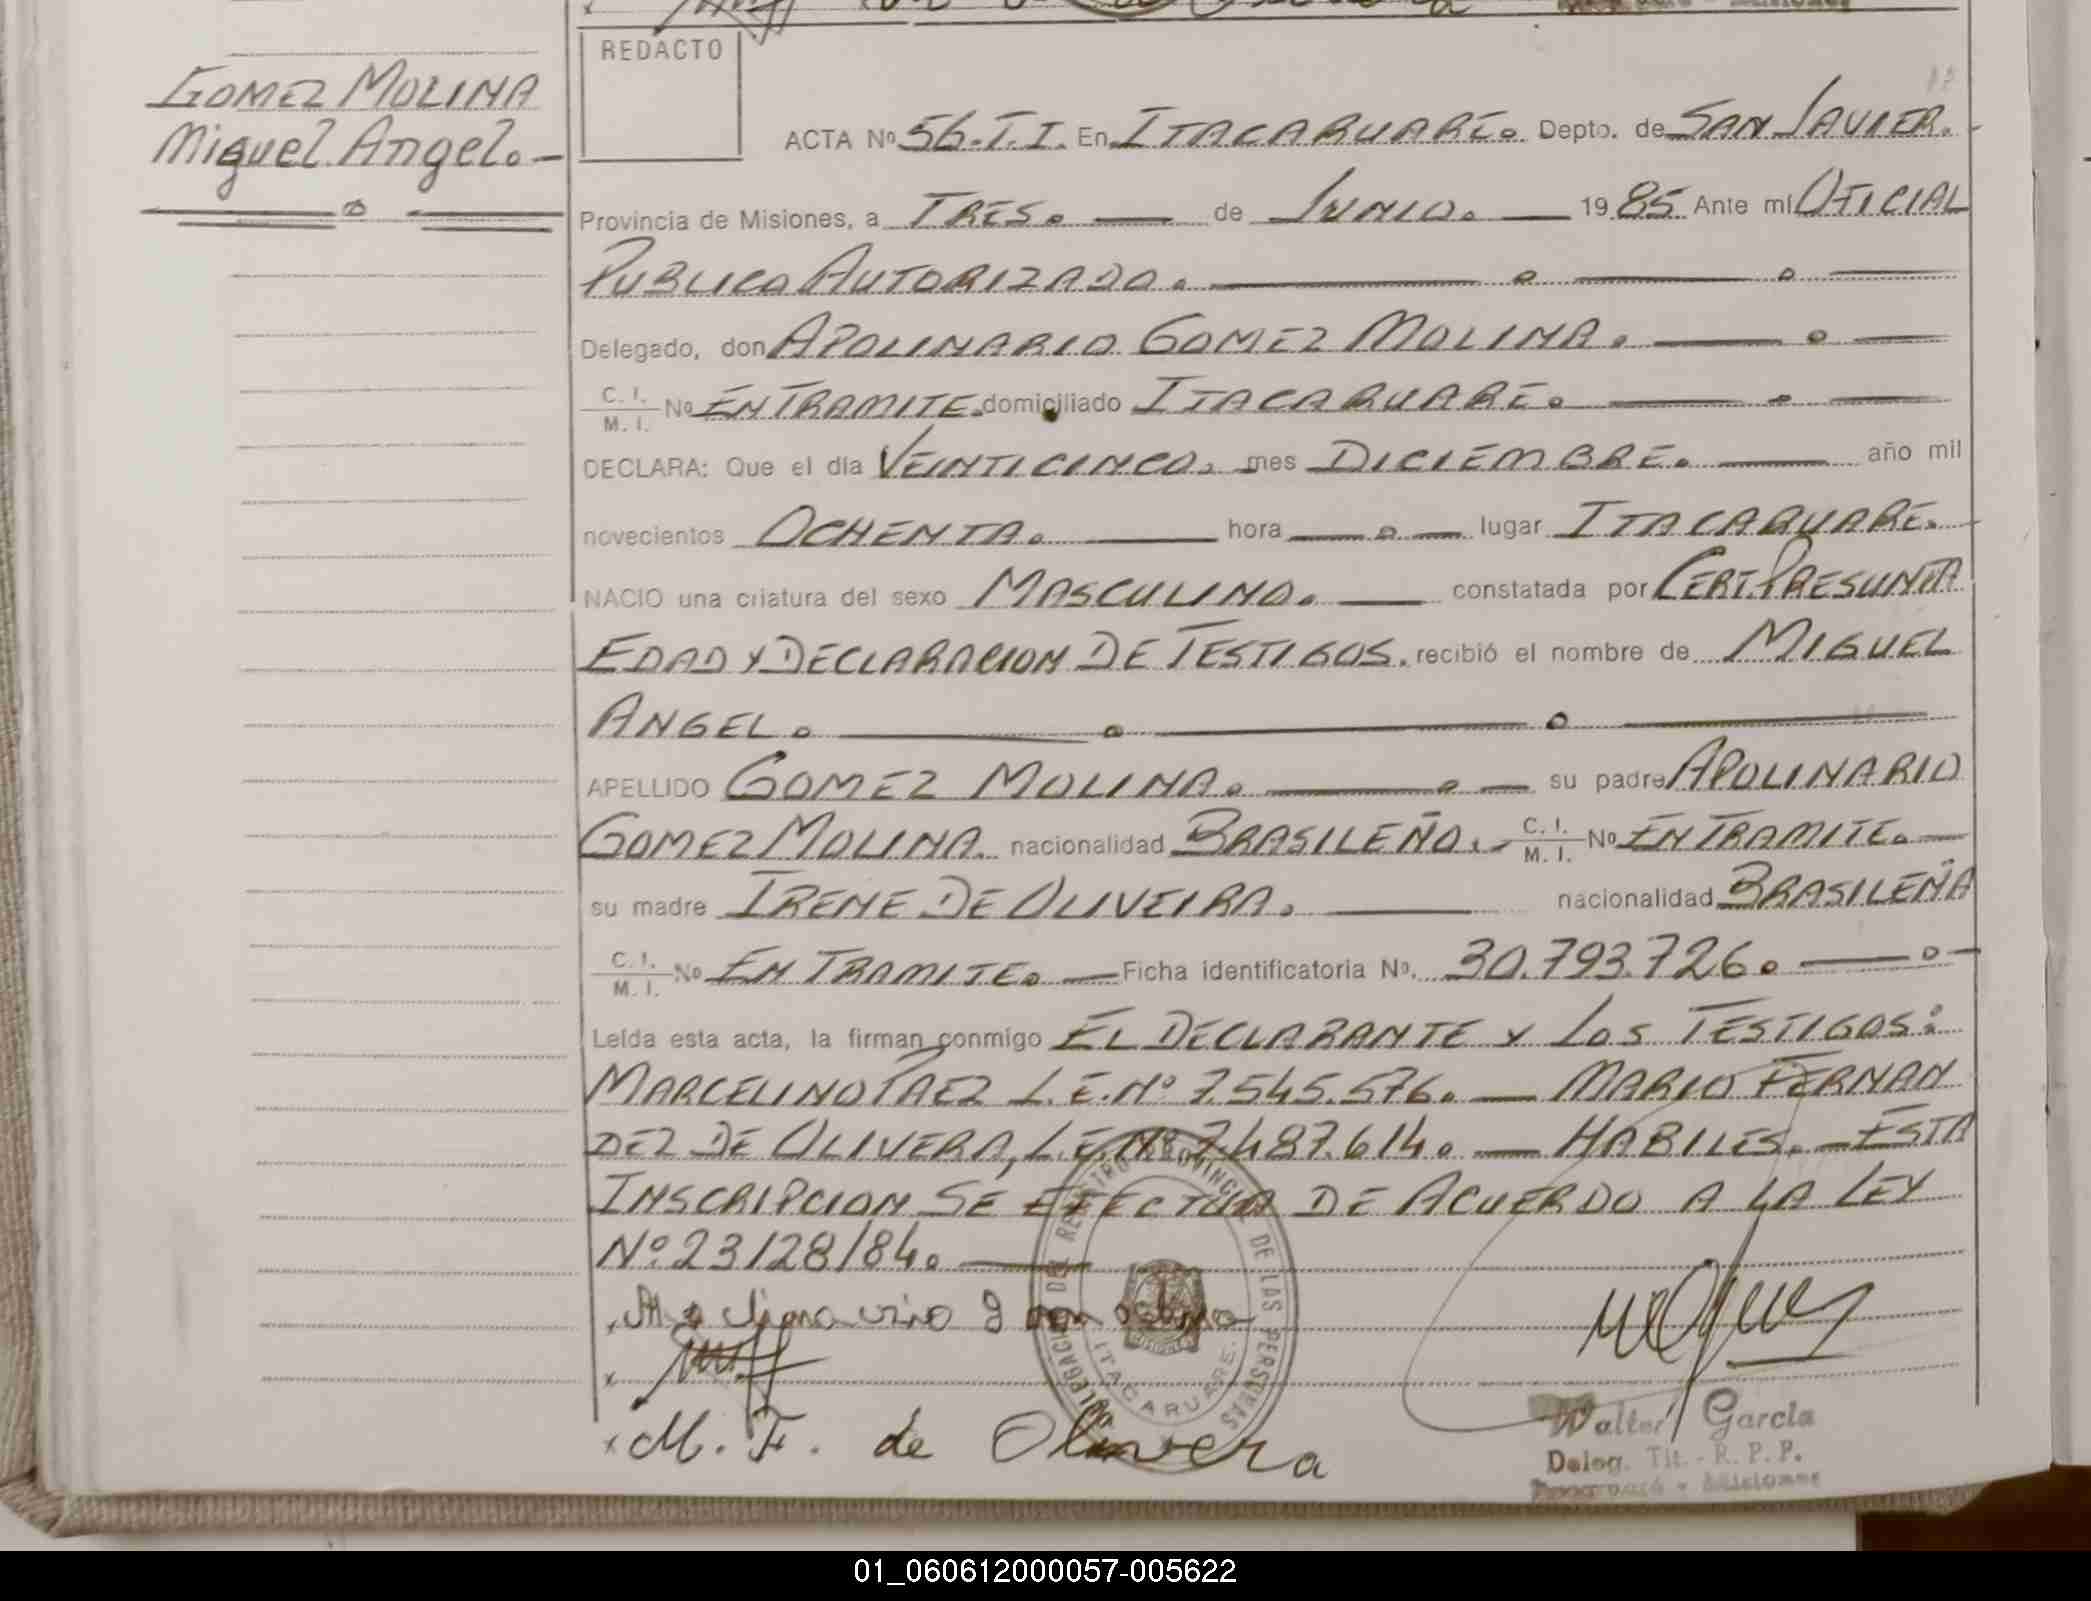 REDACTO
GOMEZ MOLINA
Miguel Angel.-
ACTA Nº 56.T.I. En ITACARUARE. Depto. de SAN JAVIER.-
Provincia de Misiones, a TRES. de JUNIO. 1985 Ante mí OFICIAL
PUBLICO AUTORIZADO.
Delegado, don APOLINARIO GOMEZ MOLINA.
C. I. / M. I. Nº EN TRAMITE. domiciliado ITACARUARE.
DECLARA: Que el día VEINTICINCO, mes DICIEMBRE. año mil
novecientos OCHENTA. hora lugar ITACARUARE.
NACIO una criatura del sexo MASCULINO. constatada por CERT.PRESUNTA
EDAD Y DECLARACION DE TESTIGOS. recibió el nombre de MIGUEL
ANGEL.
APELLIDO GOMEZ MOLINA. su padre APOLINARIO
GOMEZ MOLINA. nacionalidad BRASILEÑO.- C. I. / M. I. Nº EN TRAMITE.
su madre IRENE DE OLIVEIRA. nacionalidad BRASILEÑA
C. I. / M. I. Nº EN TRAMITE. Ficha identificatoria Nº. 30.793.726.
Leída esta acta, la firman conmigo EL DECLARANTE Y LOS TESTIGOS:
MARCELINO PAEZ L.E.Nº 7.545.576. MARIO FERNAN
DEZ DE OLIVERA, L.E.Nº 7.487.614. HABILES. ESTA
INSCRIPCION SE EFECTUA DE ACUERDO A LA LEY
Nº 23/28/84.
DELEGACION DEL REGISTRO PROVINCIAL DE LAS PERSONAS
ITACARUARE.
x M. F. de Olivera
Walter García
Deleg. Tit. - R. P. P.
Misiones
01_060612000057-005622